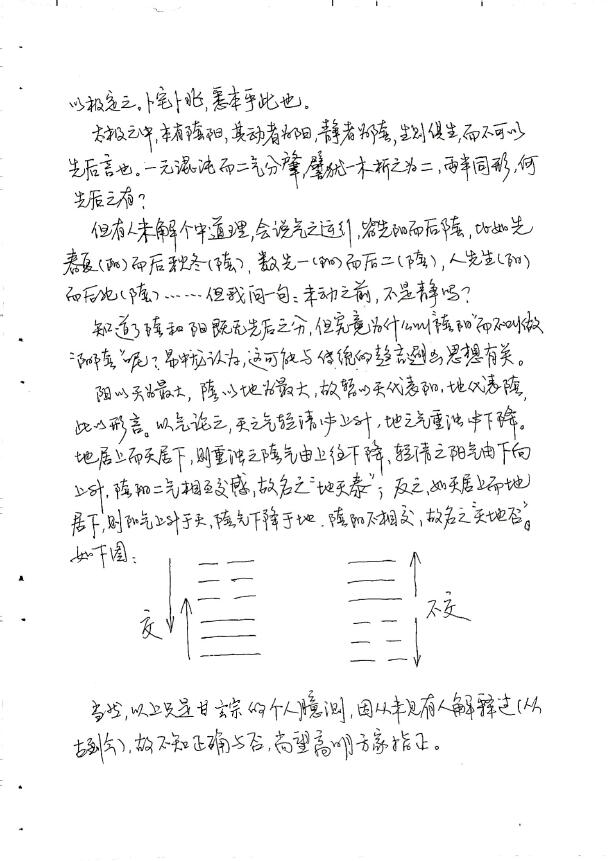 以极定之。卜宅卜兆，悉本乎此也。
太极之中，本有陰阳，其动者为阳，静者为陰，生则俱生，而不可以
先后言也。一元混沌而二气分肇，譬犹一木析之为二，两半同形，何
先后之有？
但有人未解个中道理，会说气之运行，皆先阳而后陰，比如先
春夏(阳)而后秋冬(陰)，数先一(阳)而后二(陰)，人先生(阳)
而后死(陰)……但我问一句：未动之前，不是静吗？
知道了陰和阳既无先后之分，但究竟为什么叫“陰阳”而不叫做
“阳陰”呢？ 认为，这可能与传统的 思想有关。
阳以天为最大，陰以地为最大，故皆以天代表阳，地代表陰，
此以形言。以气论之，天之气轻清冲上升，地之气重浊冲下降。
地居上而天居下，则重浊之陰气由上往下降，轻清之阳气由下向
上升，陰阳二气相互交感，故名之“地天泰”；反之，如天居上而地
居下，则阳气上升于天，陰气下降于地．陰阳不相交，故名之“天地否”。
如下图：
交
不交
当然，以上只是甘玄宗的个人臆测，因从未见有人解释过(从
古到今)，故不知正确与否，尚望高明方家指正。